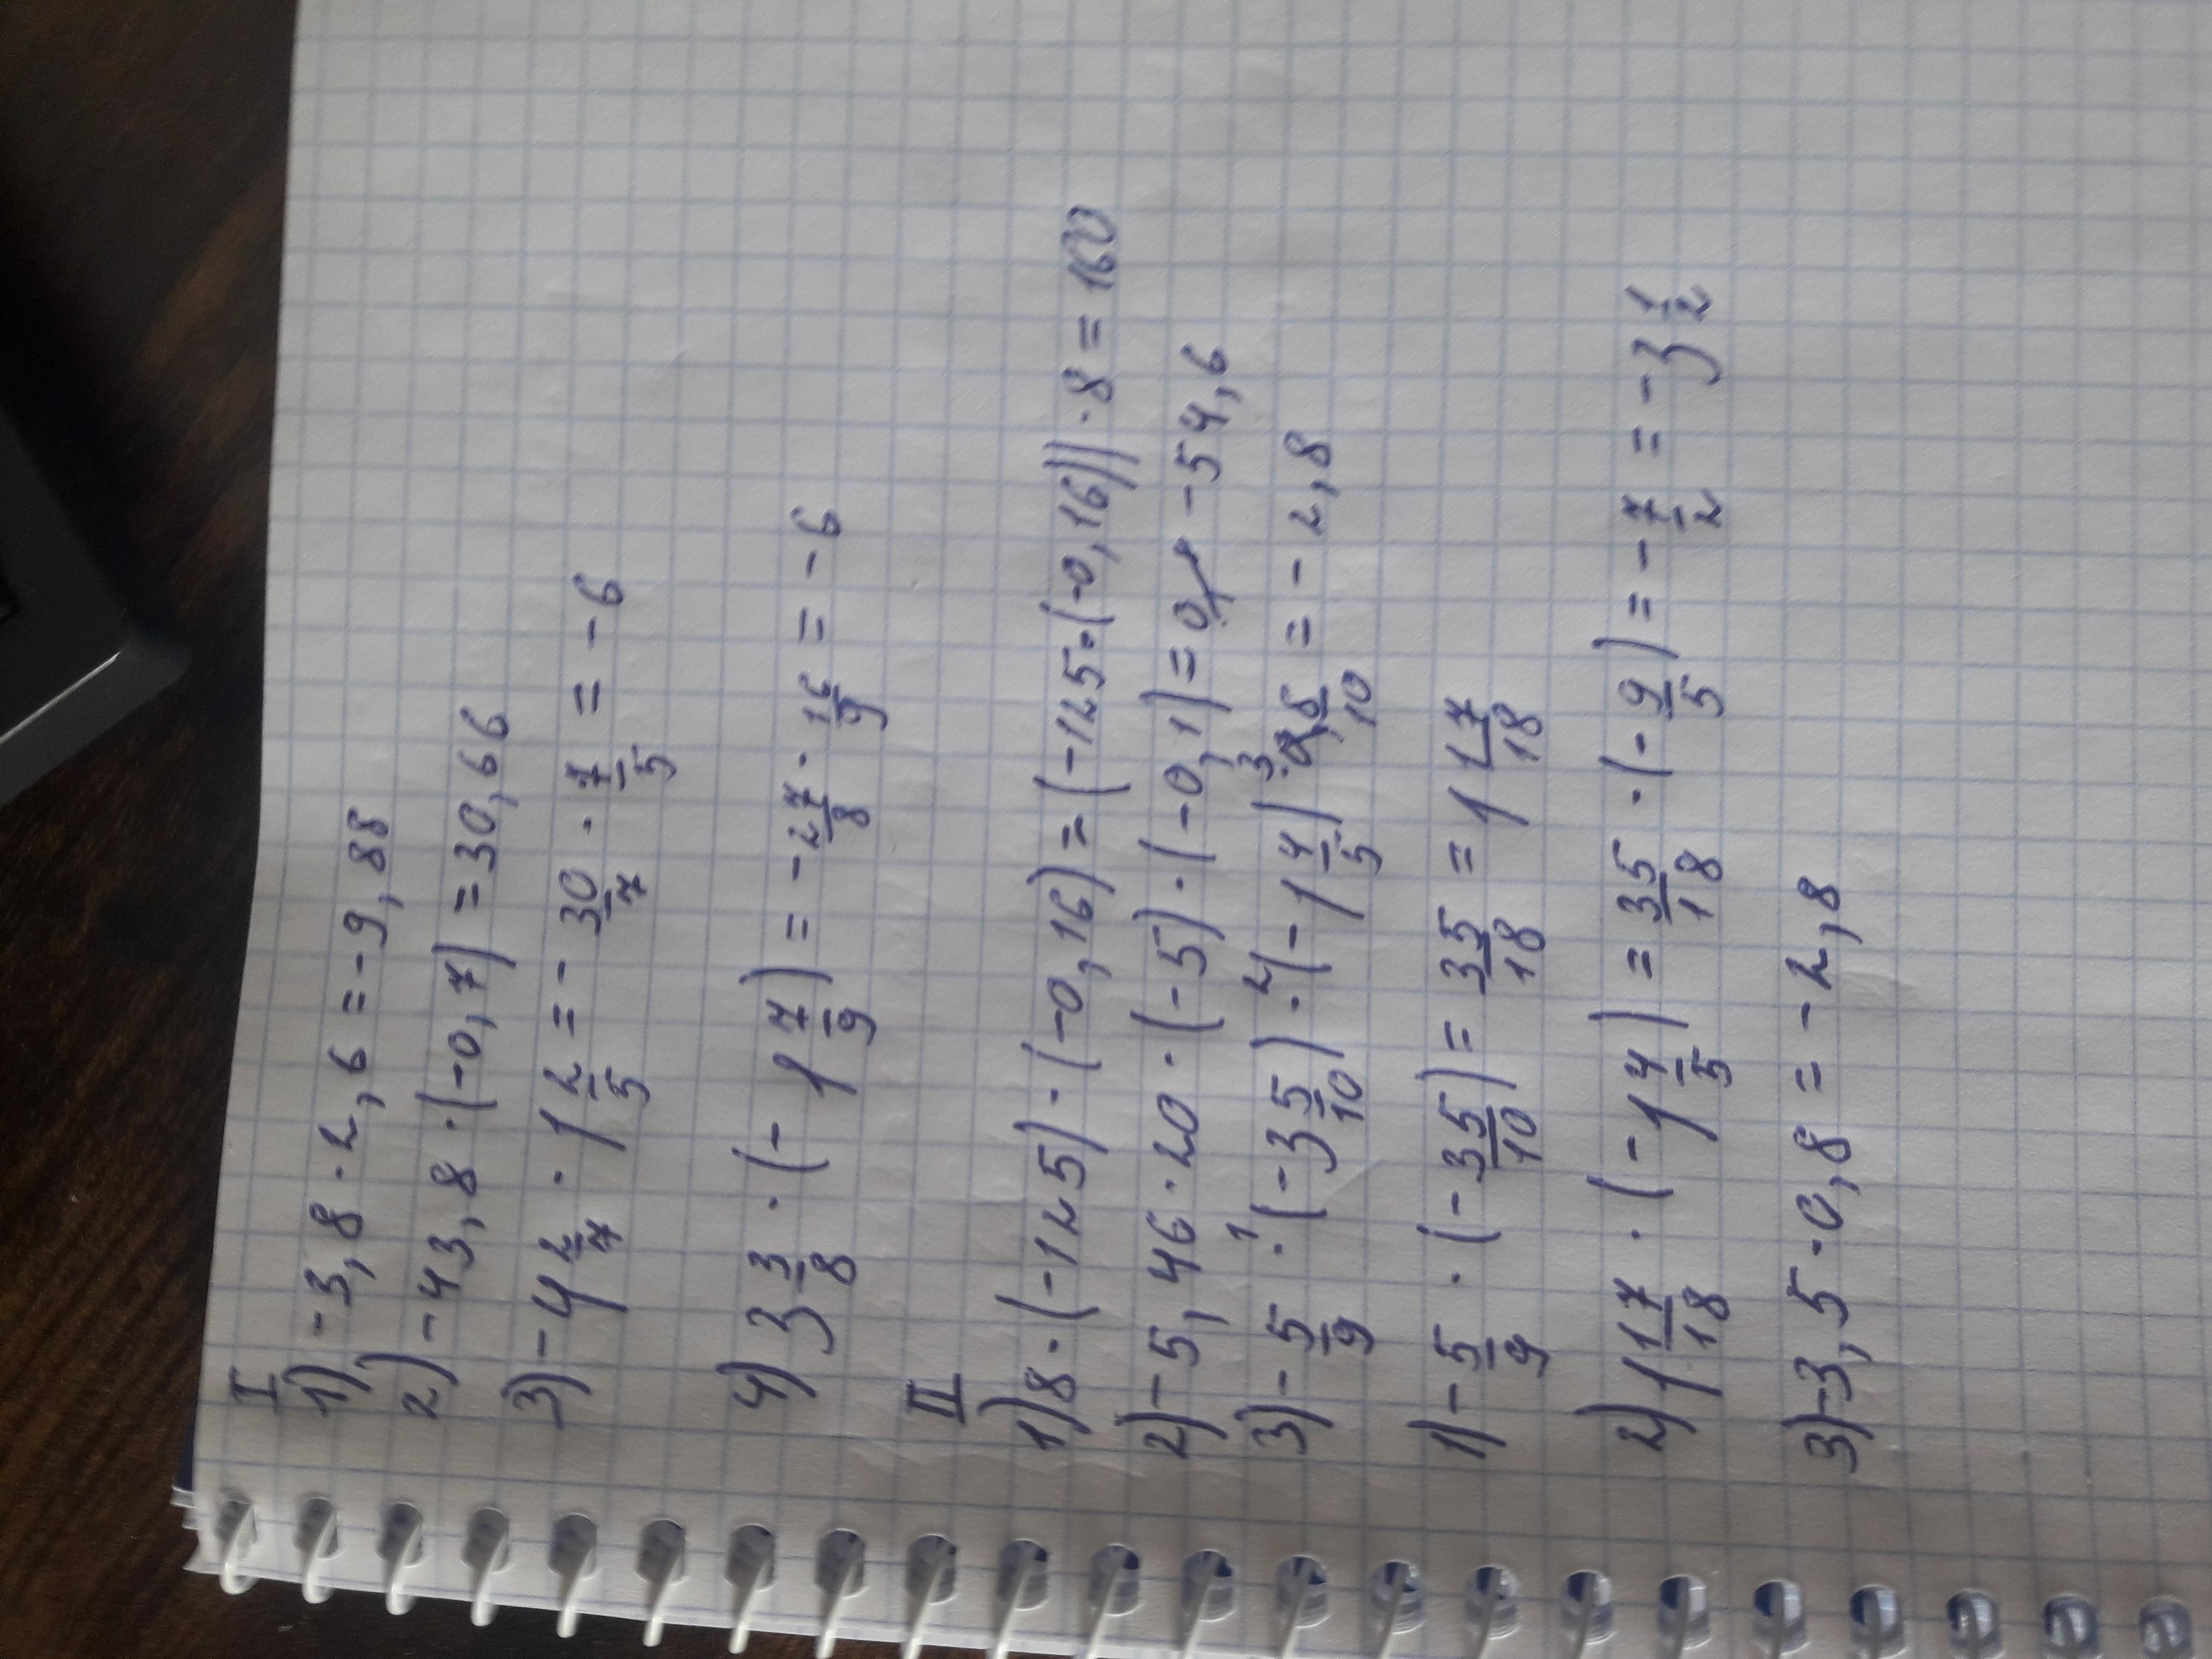 I
1) -3,8 · 2,6 = -9,88
2) -43,8 · (-0,7) = 30,66
3) -4 2/7 · 1 2/5 = - 30/7 · 7/5 = -6
4) 3 3/8 · (- 1 7/9) = - 27/8 · 16/9 = -6
II
1) 8 · (-125) · (-0,16) = (-125 · (-0,16)) · 8 = 160
2) -5,46 · 20 · (-5) · (-0,1) = -54,6
3) - 5/9 · (-3 5/10) · (- 1 4/5) · 8/10 = - 2,8
1) - 5/9 · (- 35/10) = 35/18 = 1 17/18
2) 1 17/18 · (- 1 4/5) = 35/18 · (- 9/5) = - 7/2 = -3 1/2
3) -3,5 · 0,8 = -2,8